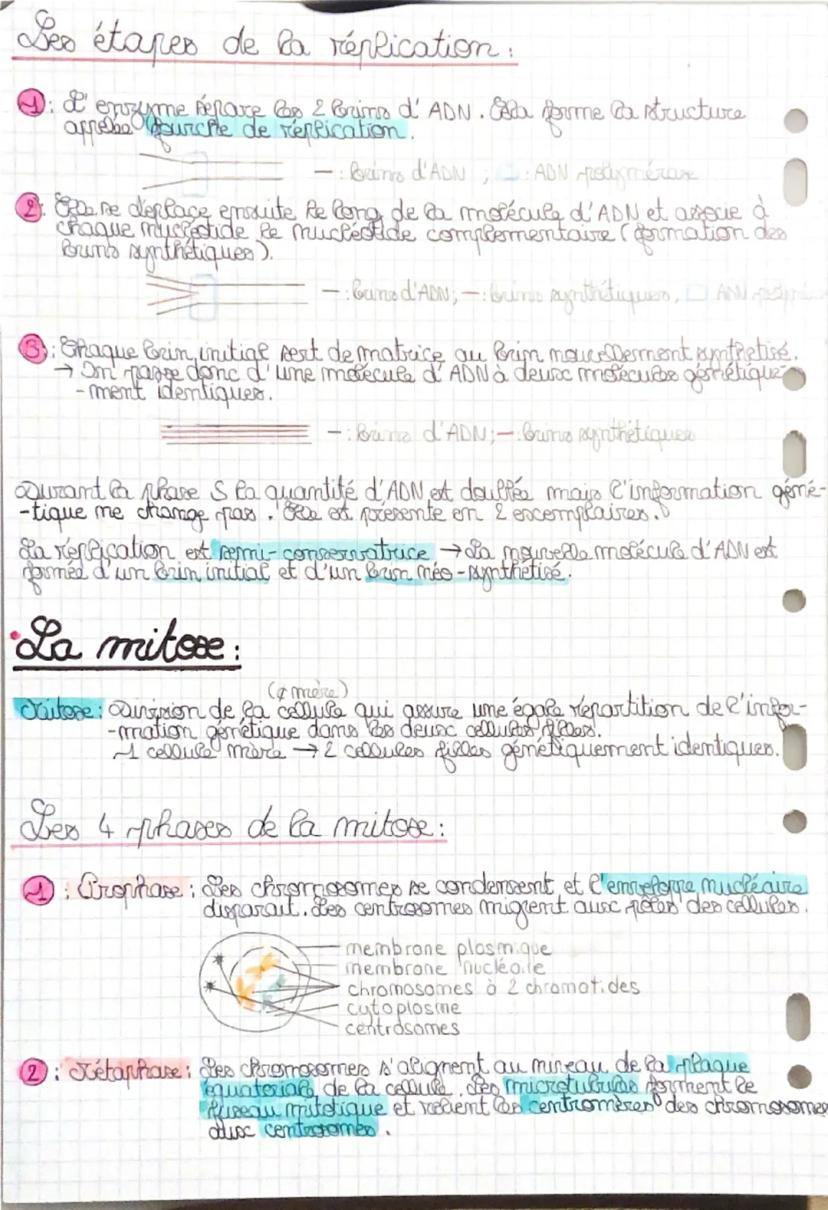 Les étapes de la réplication :
1 : L'enzyme sépare les 2 brins d'ADN. Cela forme la structure
appelée fourche de réplication.
— : Brins d'ADN ; : ADN polymérase
2 : Elle se déplace ensuite le long de la molécule d'ADN et associe à
chaque nucléotide le nucléotide complémentaire (formation des
brins synthétiques).
— : Brins d'ADN ; — : brins synthétiques,
3 : Chaque brin initial sert de matrice au brin nouvellement synthétisé.
→ On passe donc d'une molécule d'ADN à deux molécules génétique-
-ment identiques.
— : Brins d'ADN ; — brins synthétiques
Durant la phase S la quantité d'ADN est doublée mais l'information géné-
-tique ne change pas. Elle est présente en 2 exemplaires.
La réplication est semi-conservatrice → La nouvelle molécule d'ADN est
formée d'un brin initial et d'un brin néo-synthétisé.
La mitose :
(¢ mère)
Mitose : Division de la cellule qui assure une égale répartition de l'infor-
-mation génétique dans les deux cellules filles.
1 cellule mère → 2 cellules filles génétiquement identiques.
Les 4 phases de la mitose :
1 : Prophase : Les chromosomes se condensent et l'enveloppe nucléaire
disparait. Les centrosomes migrent aux pôles des cellules.
membrane plasmique
membrane nucléaire
chromosomes à 2 chromatides
cytoplasme
centrosomes
2 : Métaphase : Les chromosomes s'alignent au niveau de la plaque
équatoriale de la cellule. Les microtubules forment le
fuseau mitotique et relient les centromères des chromosomes
aux centrosomes.